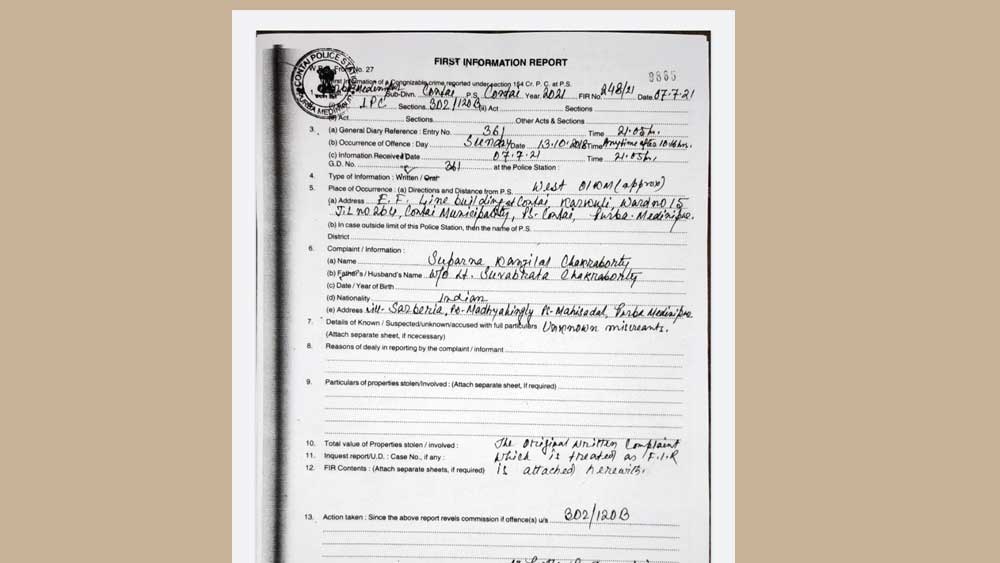 FIRST INFORMATION REPORT
CONTAI POLICE STATION
PURBA MEDINIPUR
No. 27
9866
First Information of a Congnizable crime reported under section 154 Cr. P. C. at P.S.
Sub-Divn. Contai P.S. Contai Year 2021 FIR No. 248/21 Date 07.7.21
IPC Sections 302/120B (ii) Act Sections
Act Sections Other Acts & Sections
3. (a) General Diary Reference : Entry No. 361 Time 21.05 h.
(b) Occurrence of Offence : Day Sunday Date 13.10.2018 Time Anytime after hrs.
(c) Infomation Received Date 07.7.21 Time 21.05 h.
G.D. No. 361 at the Police Station :
4. Type of Information : Written / Oral
5. Place of Occurrence : (a) Directions and Distance from P.S. West 01 KM (approx)
(a) Address E. F. Line building at Contai, Karkuli, Ward no 15
J.L no 264, Contai Municipality, Ps- Contai, Purba- Medinipur.
(b) In case outside limit of this Police Station, then the name of P.S.
District
6. Complaint / Information :
(a) Name Suparna Kanjilal Chakraborty
(b) Father's / Husband's Name W/o Lt. Suvabrata Chakraborty
(c) Date / Year of Birth
(d) Nationality Indian
(e) Address vill- Sarberia, Po- Madhyahingly Ps- Mahisadal, Purba Medinipur
7. Details of Known / Suspected/unknown/accused with full particulers Unknown miscreants.
(Attach separate sheet, if ncecessary)
8. Reasons of dealy in reporting by the complaint / informant
9. Particulars of properties stolen/Involved : (Attach separate sheet, if required)
10. Total value of Properties stolen / involved : The Original written Complaint
11. Inquest report/U.D. : Case No., if any : which is treated as F.I.R
12. FIR Contents : (Attach separate sheets, if required) is attached herewith.
13. Action taken : Since the above report revels commission if offence(s) u/s 302/120B